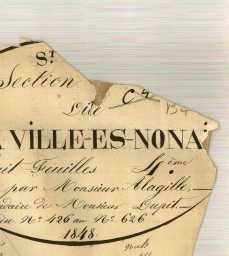 St
Section
Dite C 2
A VILLE-ES-NONA
it Feuilles 4.ème
par Monsieur Magille,
daire de Monsieur Dupit
du No. 426 au No. 626
1848